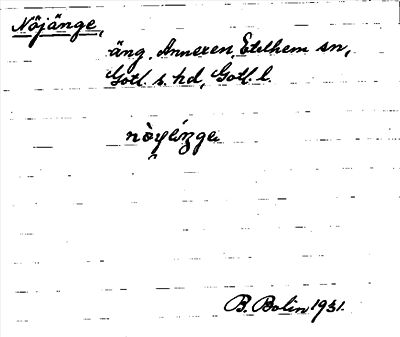 Nöjänge,
äng, Annexen, Etelhem sn,
Gotl. s. hd, Gotl. l.
B. Bolin 1931.